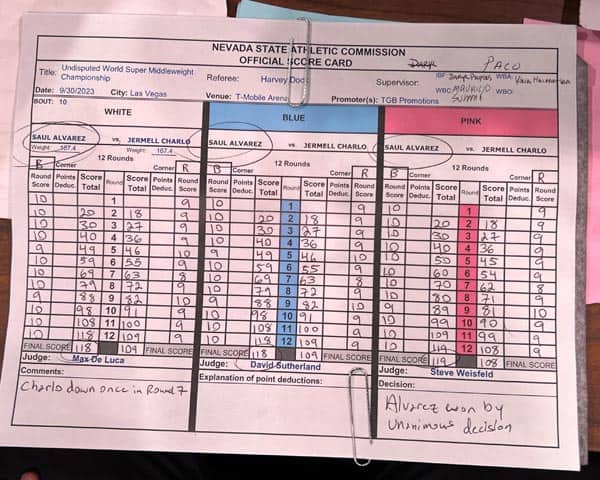 NEVADA STATE ATHLETIC COMMISSION
OFFICIAL SCORE CARD
Title: Undisputed World Super Middleweight Championship
Referee: Harvey Doc
Supervisor:
PACO
IBF WBA:
WBC MAURICIO WBO:
Date: 9/30/2023 City: Las Vegas Venue: T-Mobile Arena Promoter(s): TGB Promotions
BOUT: 10
WHITE BLUE PINK
SAUL ALVAREZ vs. JERMELL CHARLO SAUL ALVAREZ vs. JERMELL CHARLO SAUL ALVAREZ vs. JERMELL CHARLO
Weight: 167.4 Weight: 167.4
12 Rounds 12 Rounds 12 Rounds
B Corner Corner R B Corner R B Corner R
Round Score Points Deduc. Score Total Round Score Total Points Deduc. Round Score Round Score Points Deduc. Score Total Round Score Total Points Deduc. Round Score Round Score Points Deduc. Score Total Round Score Total Points Deduc. Round Score
10 1 9 10 1 9 10 1 9
10 20 2 18 9 10 20 2 18 9 10 20 2 18 9
10 30 3 27 9 10 30 3 27 9 10 30 3 27 9
10 40 4 36 9 10 40 4 36 9 10 40 4 36 9
9 49 5 46 10 9 49 5 46 10 10 50 5 45 9
10 59 6 55 9 10 59 6 55 9 10 60 6 54 9
10 69 7 63 8 10 69 7 63 8 10 70 7 62 8
10 79 8 72 9 10 79 8 72 9 10 80 8 71 9
9 88 9 82 10 9 88 9 82 10 9 89 9 81 10
10 98 10 91 9 10 98 10 91 9 10 99 10 90 9
10 108 11 100 9 10 108 11 100 9 10 109 11 99 9
10 118 12 109 9 10 118 12 109 9 10 119 12 108 9
FINAL SCORE 118 109 FINAL SCORE FINAL SCORE 118 109 FINAL SCORE FINAL SCORE 119 108 FINAL SCORE
Judge: Max De Luca Judge: David Sutherland Judge: Steve Weisfeld
Comments: Explanation of point deductions: Decision:
Charlo down once in Round 7
Alvarez won by
Unanimous decision